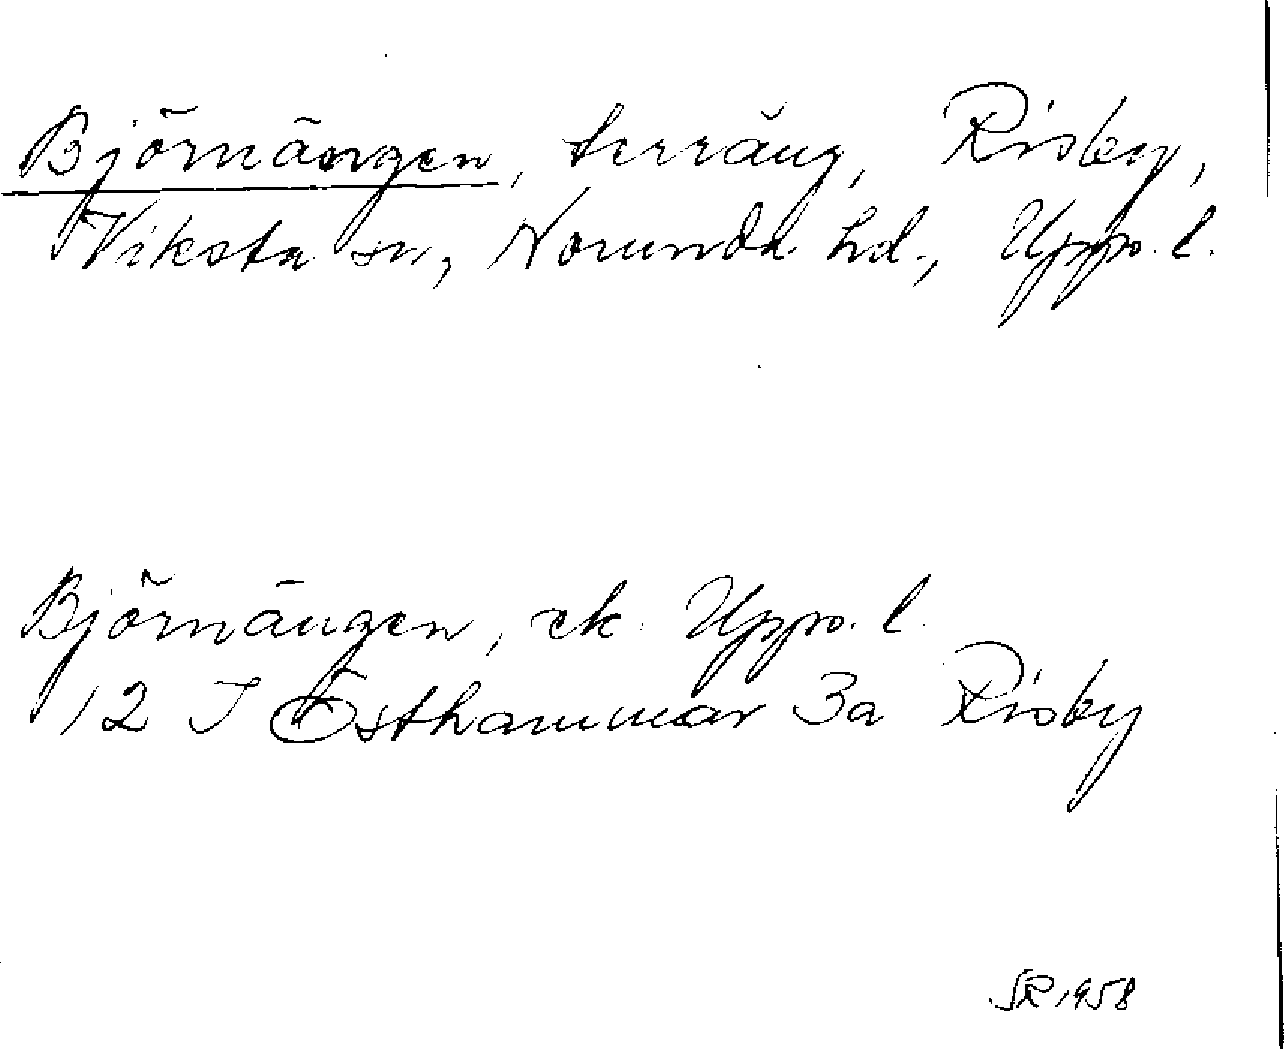 Björnängen, terräng, Risby,
Viksta sn, Norunda hd., Upps. l.
Björnängen, ek. Upps. l.
12 I Östhammar 3a Risby
SR 1958